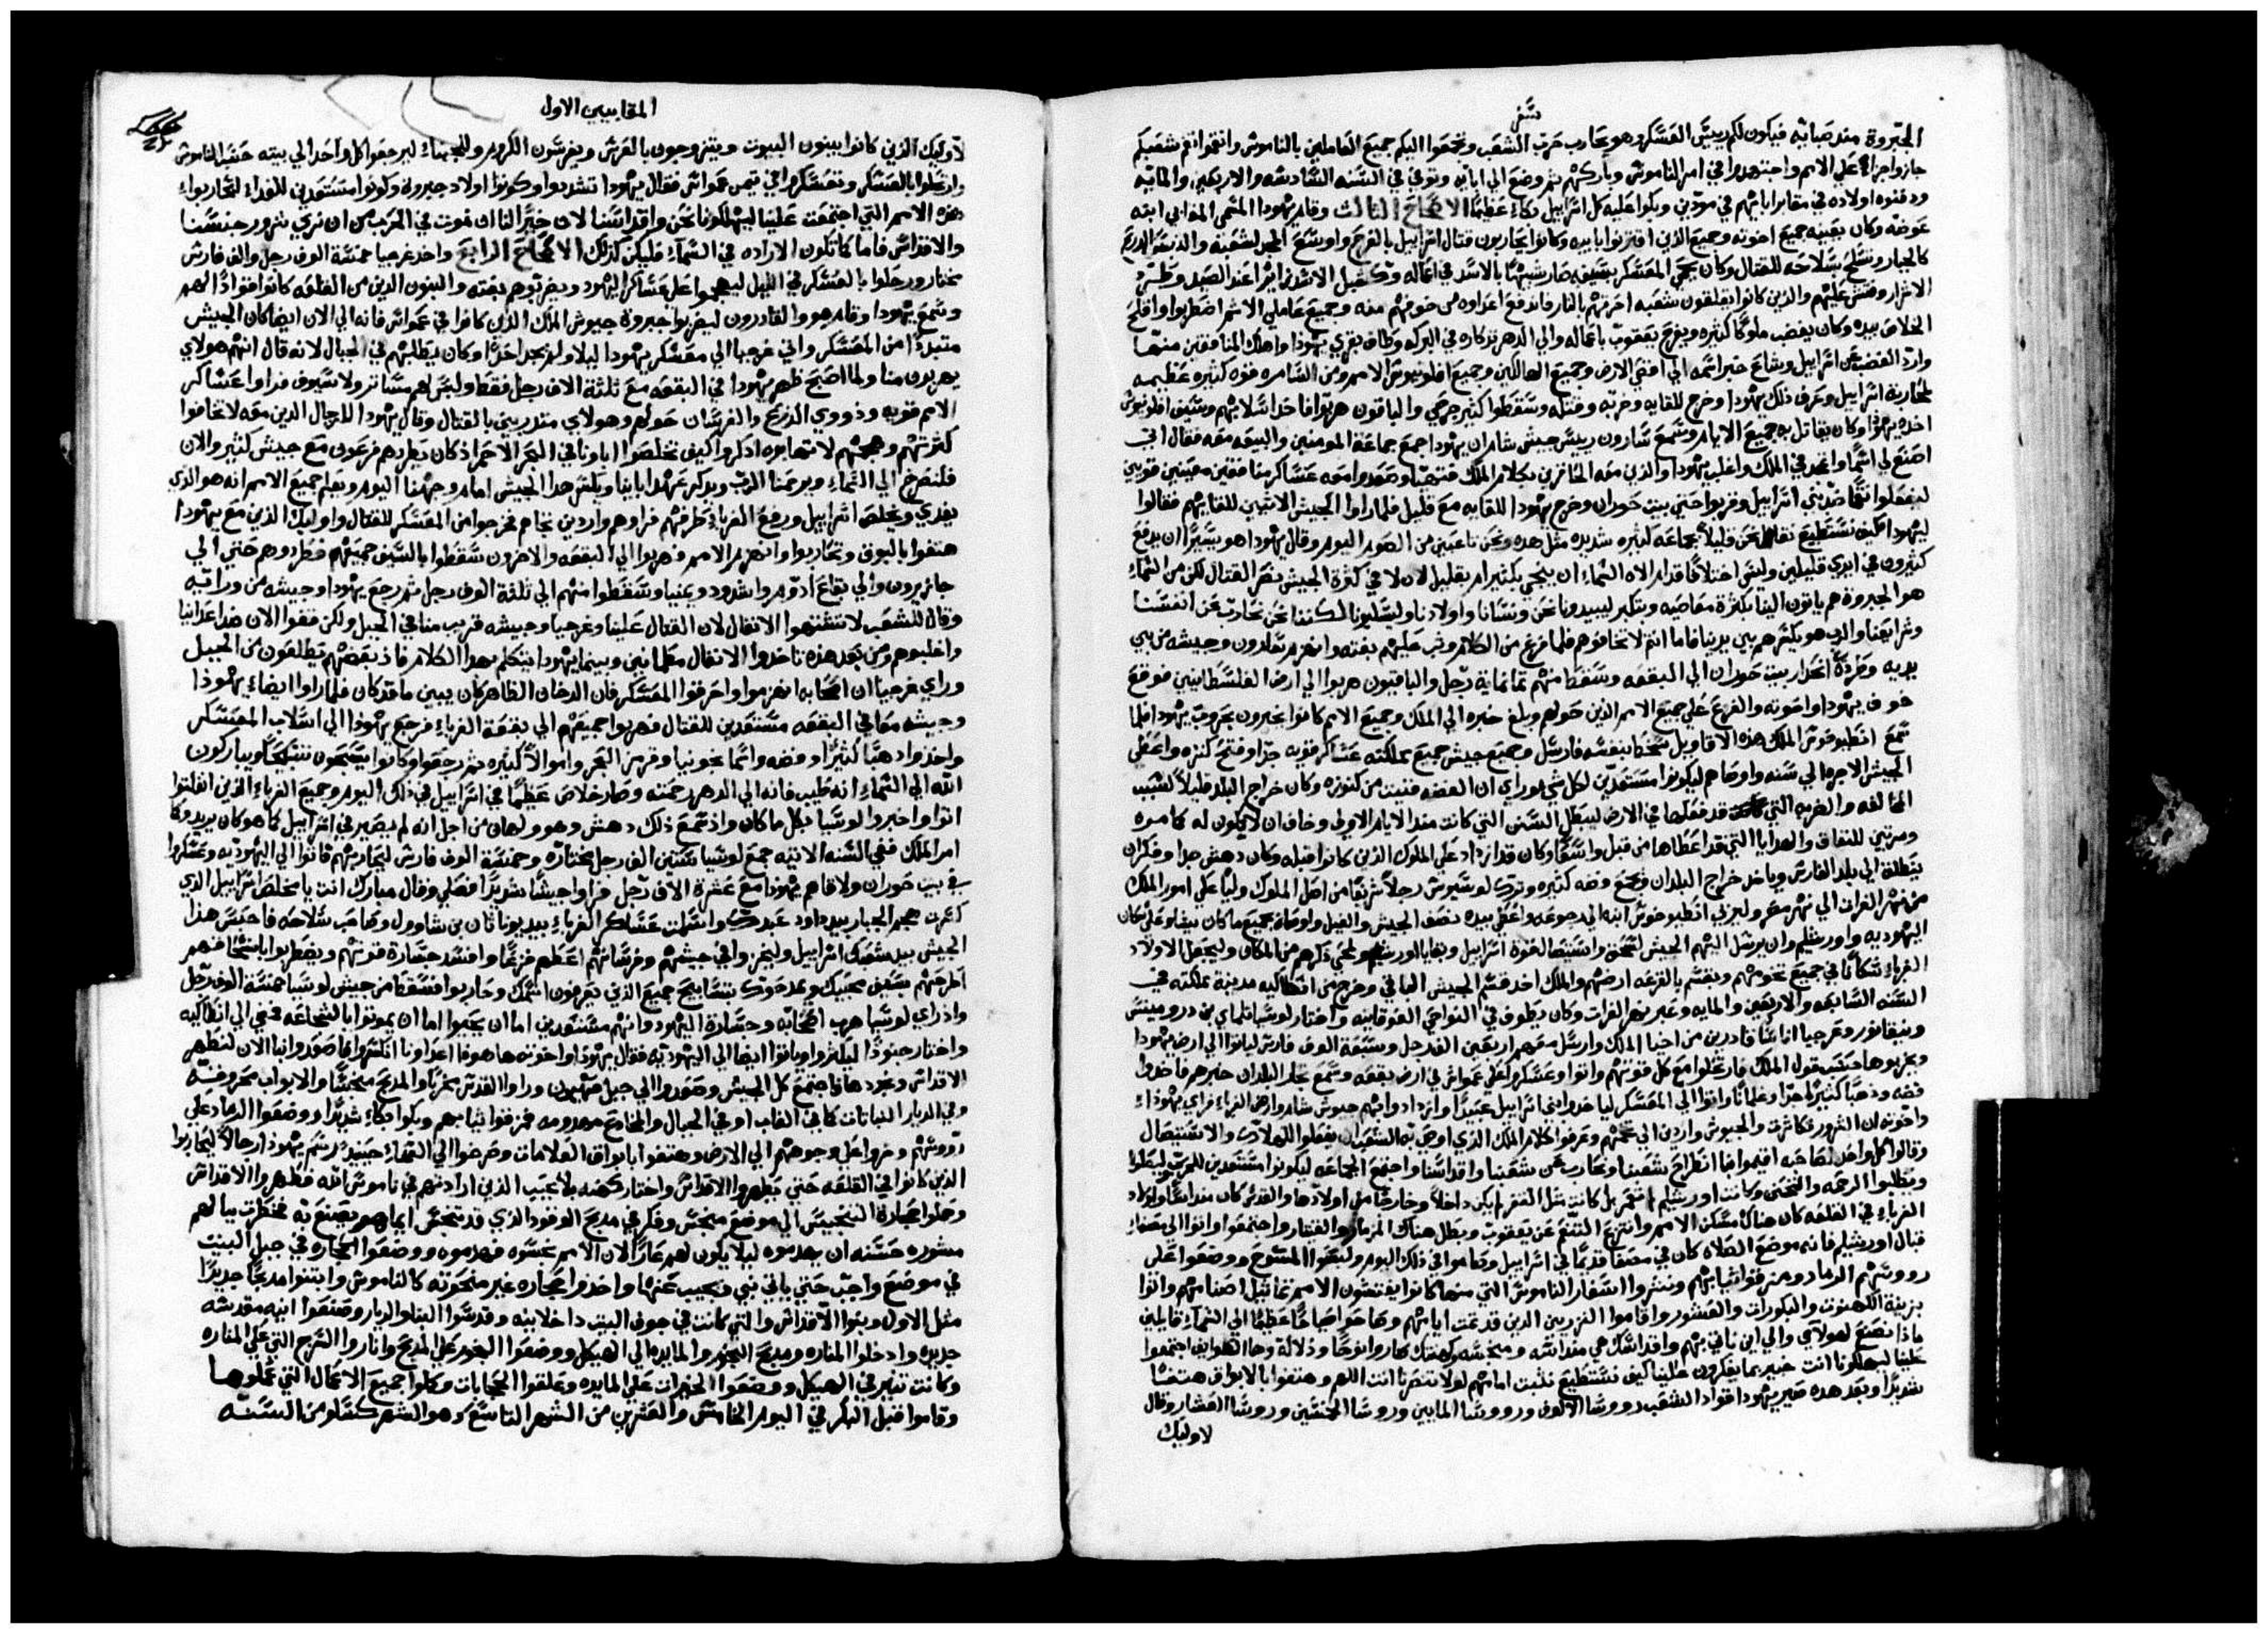 سفر
الجبروة مند صبائه فيكون لكم رييس العسكر وهو يحارب حرب الشعب وتجمعوا اليكم جميع العاملين بالناموس وانتقموا نقم شعبكم
جازوا جزاء علي الامم واجتهدوا في امر الناموس وباركهم ثم وضع الي ابايه وتوفي في السنه السادسه والاربعين والمايه
ودفنوه اولاده في مقابر اباتهم في مودين وبكوا عليه كل اسراييل بكاء عظيما الاصحاح الثالث وقام يهودا المسمي المقابي ابنه
عوضه وكان يعينه جميع اخوته وجميع الذين اقترنوا بابيه وكانوا يحاربون قتال اسراييل بالفرح واوسع المجد لشعبه والدرع
كالجبار وتسلح سلاحه للقتال وكان يحمي المعسكر بسيفه صار شبيها بالاسد في اعماله وكشبل الاسد زايرا عند الصيد وطرد
الاشرار وفتش عليهم والذين كانوا يقلقون شعبه احرقهم بالنار فاندفع اعداوه من خوفهم منه وجميع عاملي الاثم اضطربوا وافلح
الخلاص بيده وكان يغضب ملوكا كثيره ويفرح يعقوب باعماله والي الدهر تذكاره في البركه وطاف بقري يهوذا واهلك المنافقين منها
وارد الغضب عن اسراييل وشاع خبر اسمه الي اقصي الارض وجميع الهالكين وجمع افلونيوس الامم ومن السامره قوه كثيره عظيمه
لمحاربة اسراييل وعرف ذلك يهودا وخرج للقايه وضربه وقتله وسقطوا كثير جرحي والباقون هربوا فاخد اسلابهم وسيف افلونيوس
اخده يهودا وكان يقاتل به جميع الايام وسمع سارون رييس جيش شام ان يهودا جمع جماعة المومنين والبيعه معه فقال اني
اصنع لي اسما واتمجد في الملك واغلب يهودا والذين معه المحاقرين بكلام الملك فتهيا وصعدوا معه عساكر منافقين معينين قويين
ليفعلوا نقما ضد بني اسراييل وقربوا حتي بيت حوران وخرج يهودا للقايه مع قليل فلما راوا الجيش الاتيين للقايهم فقالوا
ليهودا كيف نستطيع نقاتل نحن قليلا بجماعه كثيره شديده مثل هده ونحن تاعبين من الصوم اليوم وقال يهودا هو يسير ان يدفع
كثيرون في ايدي قليلين وليس اختلافا قدام الاه السماء ان ينجي بكثير ام بقليل لان لا في كثرة الجيش نصر القتال لكن من السماء
هو الجبروة هم ياتون الينا بكثرة معاصيه وبتكبر ليبيدونا نحن ونسانا واولادنا وليسلبونا لكننا نحن نحارب عن انفسنا
وشرايعنا والرب هو يكسرهم بين يدينا فاما انتم لا تخافوهم فلما فرغ من الكلام وثب عليهم بغته وانهزم سارون وجيشه من بين
يديه وطرده انحدار بيت حوران الي البقعه وسقط منهم تمانماية رجل والباقيون هربوا الي ارض الفلسطانيين فوقع
خوف يهودا واخوته والفزع علي جميع الامم الذين حولهم وبلغ خبره الي الملك وجميع الامم كانوا يخبرون بحروب يهودا فلما
سمع انطيوخوس الملك هذه الاقاويل سخط بنفسه فارسل وجمع جيش جميع مملكته عساكر قويه جدا وفتح كنزه واعطي
الجيش الاجره الي سنه واوصاهم ليكونوا مستعدين لكل شي وراي ان الفضه فنيت من كنوزه وكان خراج البلد قليلا لسبب
المخالفه والضربه التي قد فعلها في الارض ليبطل السنن التي كانت مند الايام الاولي وخاف ان لا يكون له كما مره
ومرتين للنفاق والهدايا التي قد اعطاها من قبل واسعا وكان قد ازداد علي الملوك الذين كانوا قبله وكان دهش جدا وفكر ان
ينطلق الي بلد الفارس وياخد خراج البلدان ويجمع فضه كثيره وترك لوسيوس رجلا شريفا من اصل الملوك وليا علي امور الملك
من نهر الفرات الي نهر مصر وليربي انطيوخوس ابنه الي رجوعه واعطي بيده نصف الجيش والفيل واوصاه بجميع ما كان يشاء وعلي سكان
اليهوديه واورشليم وان يرسل اليهم الجيش لسحق واستيصال قوة اسراييل وبقايا اورشليم ويمحي ذكرهم من المكان وليجعل الاولاد
الغرباء سكانا في جميع تخومهم ويقسم بالقرعه ارضهم والملك اخد قسم الجيش الباقي وخرج من انطاكيه مدينة مملكته في
السنه السابعه والاربعين والمايه وعبر نهر الفرات وكان يطوف في النواحي الفوقانيه واختار لوسيا تلماي بن درومينس
ونيقانور وغرجيا اناسا قادرين من احبا الملك وارسل معهم اربعين الف رجل وسبعة الوف فارس لياتوا الي ارض يهودا
ويخربوها حسب قول الملك فارتحلوا مع كل قوتهم واتوا وعسكروا علي عمواس في ارض بقعه وسمع تجار البلدان خبرهم فاخدوا
فضه وذهبا كثيرا جدا وغلمانا واتوا الي المعسكر لياخدوا بني اسراييل عبيدا وازدادوا بهم جيوش شام وارض الغرباء فراي يهوداء
واخوته ان الشرور تكاثرت والجيوش واردين الي تخمهم وعرفوا كلام الملك الذي اوصي به الشعب ان يفعلوا الهلاك والاستيصال
وقالوا كل واحد لصاحبه اقيموا فا انطراح شعبنا ونحارب عن شعبنا واقداسنا واجتمع الجماعه ليكونوا مستعدين للحرب ليصلوا
ويطلبوا الرحمه والتحنن وكانت اورشليم لا تعمر بل كانت مثل القفر لم يكن داخلا وخارجا من اولادها والقدس كان منداسا واولاد
الغرباء في القلعه كان هناك مسكن الامم وانتزع التنعم عن يعقوب وبطل هناك المزمار والقيتار واجتمعوا واتوا الي مصفاء
قبال اورشليم فانه موضع الصلاه كان في مصفا قديما في اسراييل وصاموا في ذلك اليوم ولبسوا المسوح ووضعوا علي
رووسهم الرماد ومزقوا ثيابهم ونشروا اسفار الناموس التي منها كانوا يفتشون الامم تماثيل اصنامهم واتوا
بزينة الكهنوت والبكورات والعشور واقاموا النزريين الذين قد تمت ايامهم وصاحوا صياحا عظيما الي السماء قايلين
ماذا نصنع لهولاي والي اين ناتي بهم واقداسك هي منداسه ومنجسه وكهنتك صاروا نوحا وذلاله وها الطوايف اجتمعوا
علينا ليهلكونا انت خبير بما يفكرون علينا كيف نستطيع نثبت امامهم لولا تنصرنا انت اللهم وهتفوا بالابواق هتفا
شديدا وبعد هده صير يهودا قواد الشعب رووسا الالوف ورووسا المايين وروسا الخمسين وروسا العشار وقال
لاوليك
المقابيين الاول
لاوليك الذين كانوا يبنون البيوت ويتزوجون بالعرس ويغرسون الكروم وللجبناء ليرجعوا كل واحد الي بيته حسب الناموس
وارتحلوا بالعسكر وتعسكروا في تيمن عمواس فقال يهودا تشددوا وكونوا اولاد جبروة وكونوا مستعدين للغداء لتحاربواء
هذه الامم التي اجتمعت علينا ليهلكونا نحن واقداسنا لان خير لنا ان نموت في الحرب من ان نري شرور جنسنا
والاقداس فاما كما تكون الاراده في السماء فليكن كذلك الاصحاح الرابع واخد غرجيا خمسة الوف رجل والف فارس
مختار ورحلوا بالعسكر في الليل ليهجموا علي عساكر اليهود ويضربوهم بغته والبنون الذين من القلعه كانوا قوادا لهم
وسمع يهودا وقام هو والقادرون ليضربوا جبروة جيوش الملك الذين كانوا في عمواس فانه الي الان ايضا كان الجيش
متبددا من المعسكر واتي غرجيا الي معسكر يهودا ليلا ولم يجد احدا وكان يطلبهم في الجبال لانه قال انهم هولاي
يهربون منا ولما اصبح ظهر يهودا في البقعه مع ثلثة الاف رجل فقط وليس لهم مساتر ولا سيوف فراوا عساكر
الامم قويه وذووي الدروع والفرسان حولهم وهولاي متدربين بالقتال وقال يهودا للرجال الدين معه لا تخافوا
كثرتهم وهجمتهم لا تهابوه ادكروا كيف تخلصوا اباونا في البحر الاحمر اذ كان يطردهم فرعون مع جيش كثير والان
فلنصرخ الي السماء ويرحمنا الرب ويدكر عهد اباينا ويكسر هدا الجيش امام وجهنا اليوم ويعلم جميع الامم انه هو الذي
يفدي ويخلص اسراييل ورفع الغرباء طرفهم فراوهم واردين تجاهم فخرجوا من المعسكر للقتال واوليك الذين مع يهودا
هتفوا بالبوق وتحاربوا وانهزم الامم وهربوا الي البقعه والاخرون سقطوا بالسيف جميعهم فطردوهم حتي الي
جازيرون والي بقاع ادوم واشدود ويمنيا وسقطوا منهم الي ثلثة الوف رجل ثم رجع يهودا وجيشه من ورايه
وقال للشعب لا تشتهوا الانفال لان القتال علينا وغرجيا وجيشه قريب منا في الجبل ولكن قفوا الان ضد اعداينا
واغلبوهم ومن بعد هذه تاخدوا الانفال مطمانين وبينما يهودا يتكلم بهدا الكلام فاذ بعضهم يطلعون من الجبل
وراي غرجيا ان اصحابه انهزموا واحرقوا المعسكر فان الدخان الظاهر كان يبين ما قد كان فلما راوا ايضاء يهوذا
وجيشه معا في البقعه مستعدين للقتال فهربوا جميعهم الي بقعة الغرباء فرجع يهوذا الي اسلاب المعسكر
واخدوا دهبا كثيرا وفضه واسمانجونيا وقرمز البحر واموالا كثيره ثم رجعوا وكانوا يسبحون تسبحا ويباركون
الله الي السماء انه طيب فانه الي الدهر رحمته وصار خلاص عظيما في اسراييل في ذلك اليوم وجميع الغرباء الذين انفلتوا
اتوا واخبروا لوسيا بكل ما كان واذ سمع ذلك دهش وهو ولهان من اجل انه لم يصير في اسراييل كما هو كان يريد وكما
امر الملك ففي السنه الاتيه جمع لوسيا ستين الف رجل مختاره وخمسة الوف فارس ليحاربهم فاتوا الي اليهوديه وعسكروا
في بيت حوران ولاقاهم يهودا مع عشرة الاف رجل فراوا جيشا شديدا فصلي وقال مبارك انت يا مخلص اسراييل الذي
كسرت هجم الجبار بيد داود عبدك واسلمت عساكر الغرباء بيد يوناتان بن شاوول وصاحب سلاحه فاحبس هذا
الجيش بيد شعبك اسراييل وليخزوا في جيشهم وفرسانهم اعطهم فزعا وافسد جسارة قوتهم ويضطربوا بانسحاقهم
اطرحهم بسيف محبيك ويمدحوك بتسابيح جميع الذين يعرفون اسمك وحاربوا فسقط من جيش لوسيا خمسة الوف رجل
واذ راي لوسيا هرب اصحابه وجسارة اليهود وانهم مستعدين اما ان يحيوا اما ان يموتوا بالشجاعه فمضي الي انطاكيه
واختار جنودا ليكثروا وياتوا ايضا الي اليهوديه فقال يهودا واخوته ها هوذا اعداونا انكسروا فلنصعدوا بنا الان لنطهر
الاقداس ونجددها فاجتمع كل الجيش وصعدوا الي جبل صهيون وراوا القدس مخربا والمدبح منجسا والابواب محروقه
وفي الديار النباتات كما في الغاب او في الجبال والمخادع مهدومه فمزقوا ثيابهم وبكوا بكاء شديدا ووضعوا الرماد علي
رووسهم وخروا علي وجوههم الي الارض وهتفوا بابواق العلامات وصرخوا الي السماء حينيد رسم يهودا رجالا ليحاربوا
الذين كانوا في القلعه حتي يطهروا الاقداس واختار كهنه بلا عيب الذين ارادتهم في ناموس الله فطهروا الاقداس
وحملوا حجارة التنجيس الي موضع منجس وفكر في مدبح الوقود الذي قد تنجس ايما هو يصنع به فخطرت ببالهم
مشوره حسنه ان يهدموه ليلا يكون لهم عارا لان الامم نجسوه فهدموه ووضعوا الحجاره في جبل البيت
في موضع واجب حتي ياتي نبي ويجيب عنها واخدوا حجاره غير منحوته كالناموس وابتنوا مدبحا جديدا
مثل الاول وبنوا الاقداس والتي كانت في جوف البيت داخلا بنه وقدسوا البيت والديار وصنعوا انيه مقدسه
جديده وادخلوا المناره ومدبح البخور والمايده الي الهيكل ووضعوا البخور علي المدبح واناروا السرج التي علي المناره
وكانت تنير في الهيكل ووضعوا الخبزات علي المايده وعلقوا الحجابات وكملوا جميع الاعمال التي عملوها
وقاموا قبل البكر في اليوم الخامس والعشرين من الشهر التاسع وهو الشهر كسلو من السنه